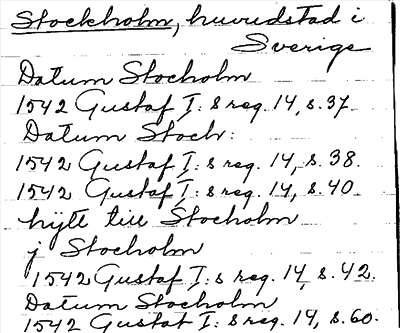 Stockholm, huvudstad i
Sverige
Datum Stocholm
1542 Gustaf I:s reg. 14, s. 37.
Datum Stoch:
1542 Gustaf I:s reg. 14, s. 38.
1542 Gustaf I:s reg. 14, s. 40.
hijtt till Stocholm
j Stocholm
1542 Gustaf I:s reg. 14, s. 42.
Datum Stocholm
1542 Gustaf I:s reg. 14, s. 60.